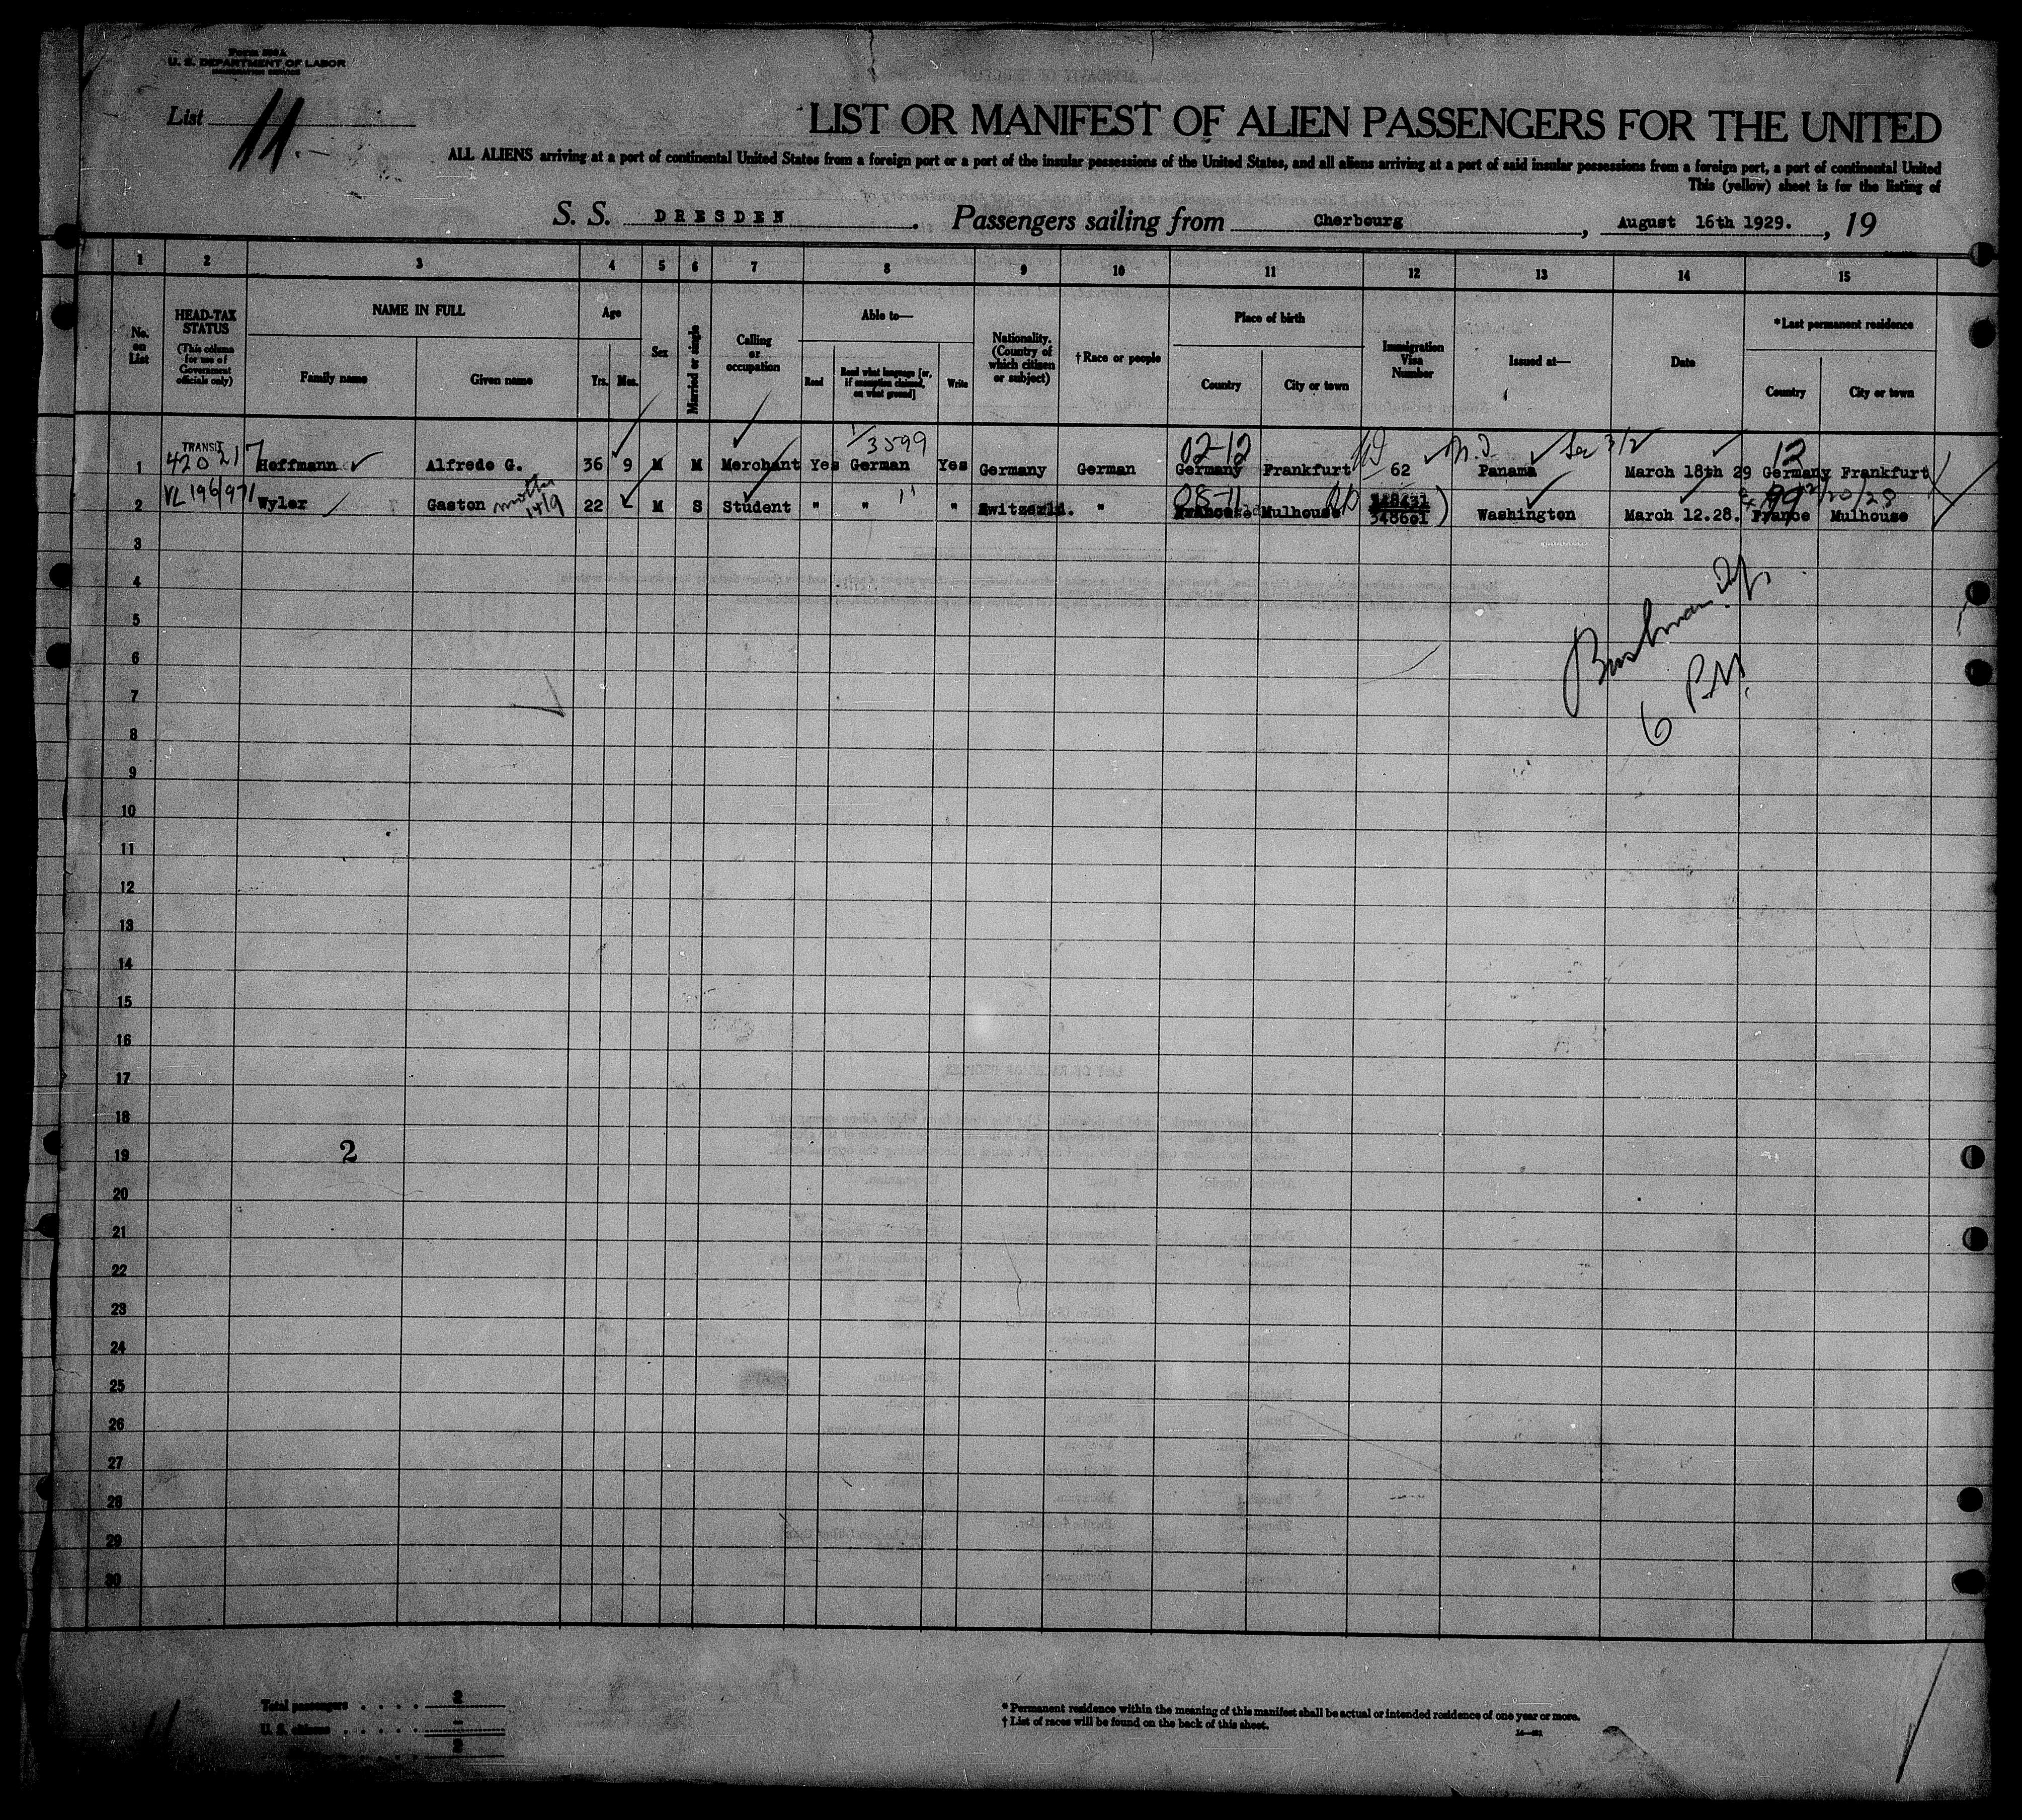 Form 500 A
U. S. DEPARTMENT OF LABOR
IMMIGRATION SERVICE
List 11.
LIST OR MANIFEST OF ALIEN PASSENGERS FOR THE UNITED
ALL ALIENS arriving at a port of continental United States from a foreign port or a port of the insular possessions of the United States, and all aliens arriving at a port of said insular possessions from a foreign port, a port of continental United
This (yellow) sheet is for the listing of
S. S. DRESDEN. Passengers sailing from Cherbourg, August 16th 1929., 19
1 2 3 4 5 6 7 8 9 10 11 12 13 14 15
No. on List
HEAD-TAX STATUS (This column for use of Government officials only)
NAME IN FULL
Family name
Given name
Age
Yrs. Mos.
Sex
Married or single
Calling or occupation
Able to—
Read
Read what language [or, if exemption claimed, on what ground]
Write
Nationality. (Country of which citizen or subject)
† Race or people
Place of birth
Country
City or town
Immigration Visa Number
Issued at—
Date
* Last permanent residence
Country
City or town
TRANSIT 3599 02-12 12
1 420217 Hoffmann Alfredo G. 36 9 M M Merchant Yes German Yes Germany German Germany Frankfurt 62 Panama March 18th 29 Germany Frankfurt
VL 196/971 mother 08-11 99
2 Wyler Gaston 22 M S Student " " " Switzerld. " Mulhouse 348601 Washington March 12.28. France Mulhouse
3
4
5
6
6 P.M.
7
8
9
10
11
12
13
14
15
16
17
18
19 2
20
21
22
23
24
25
26
27
28
29
30
Total passengers . . . . 2
U. S. citizens . . . . . –
2
* Permanent residence within the meaning of this manifest shall be actual or intended residence of one year or more.
† List of races will be found on the back of this sheet.